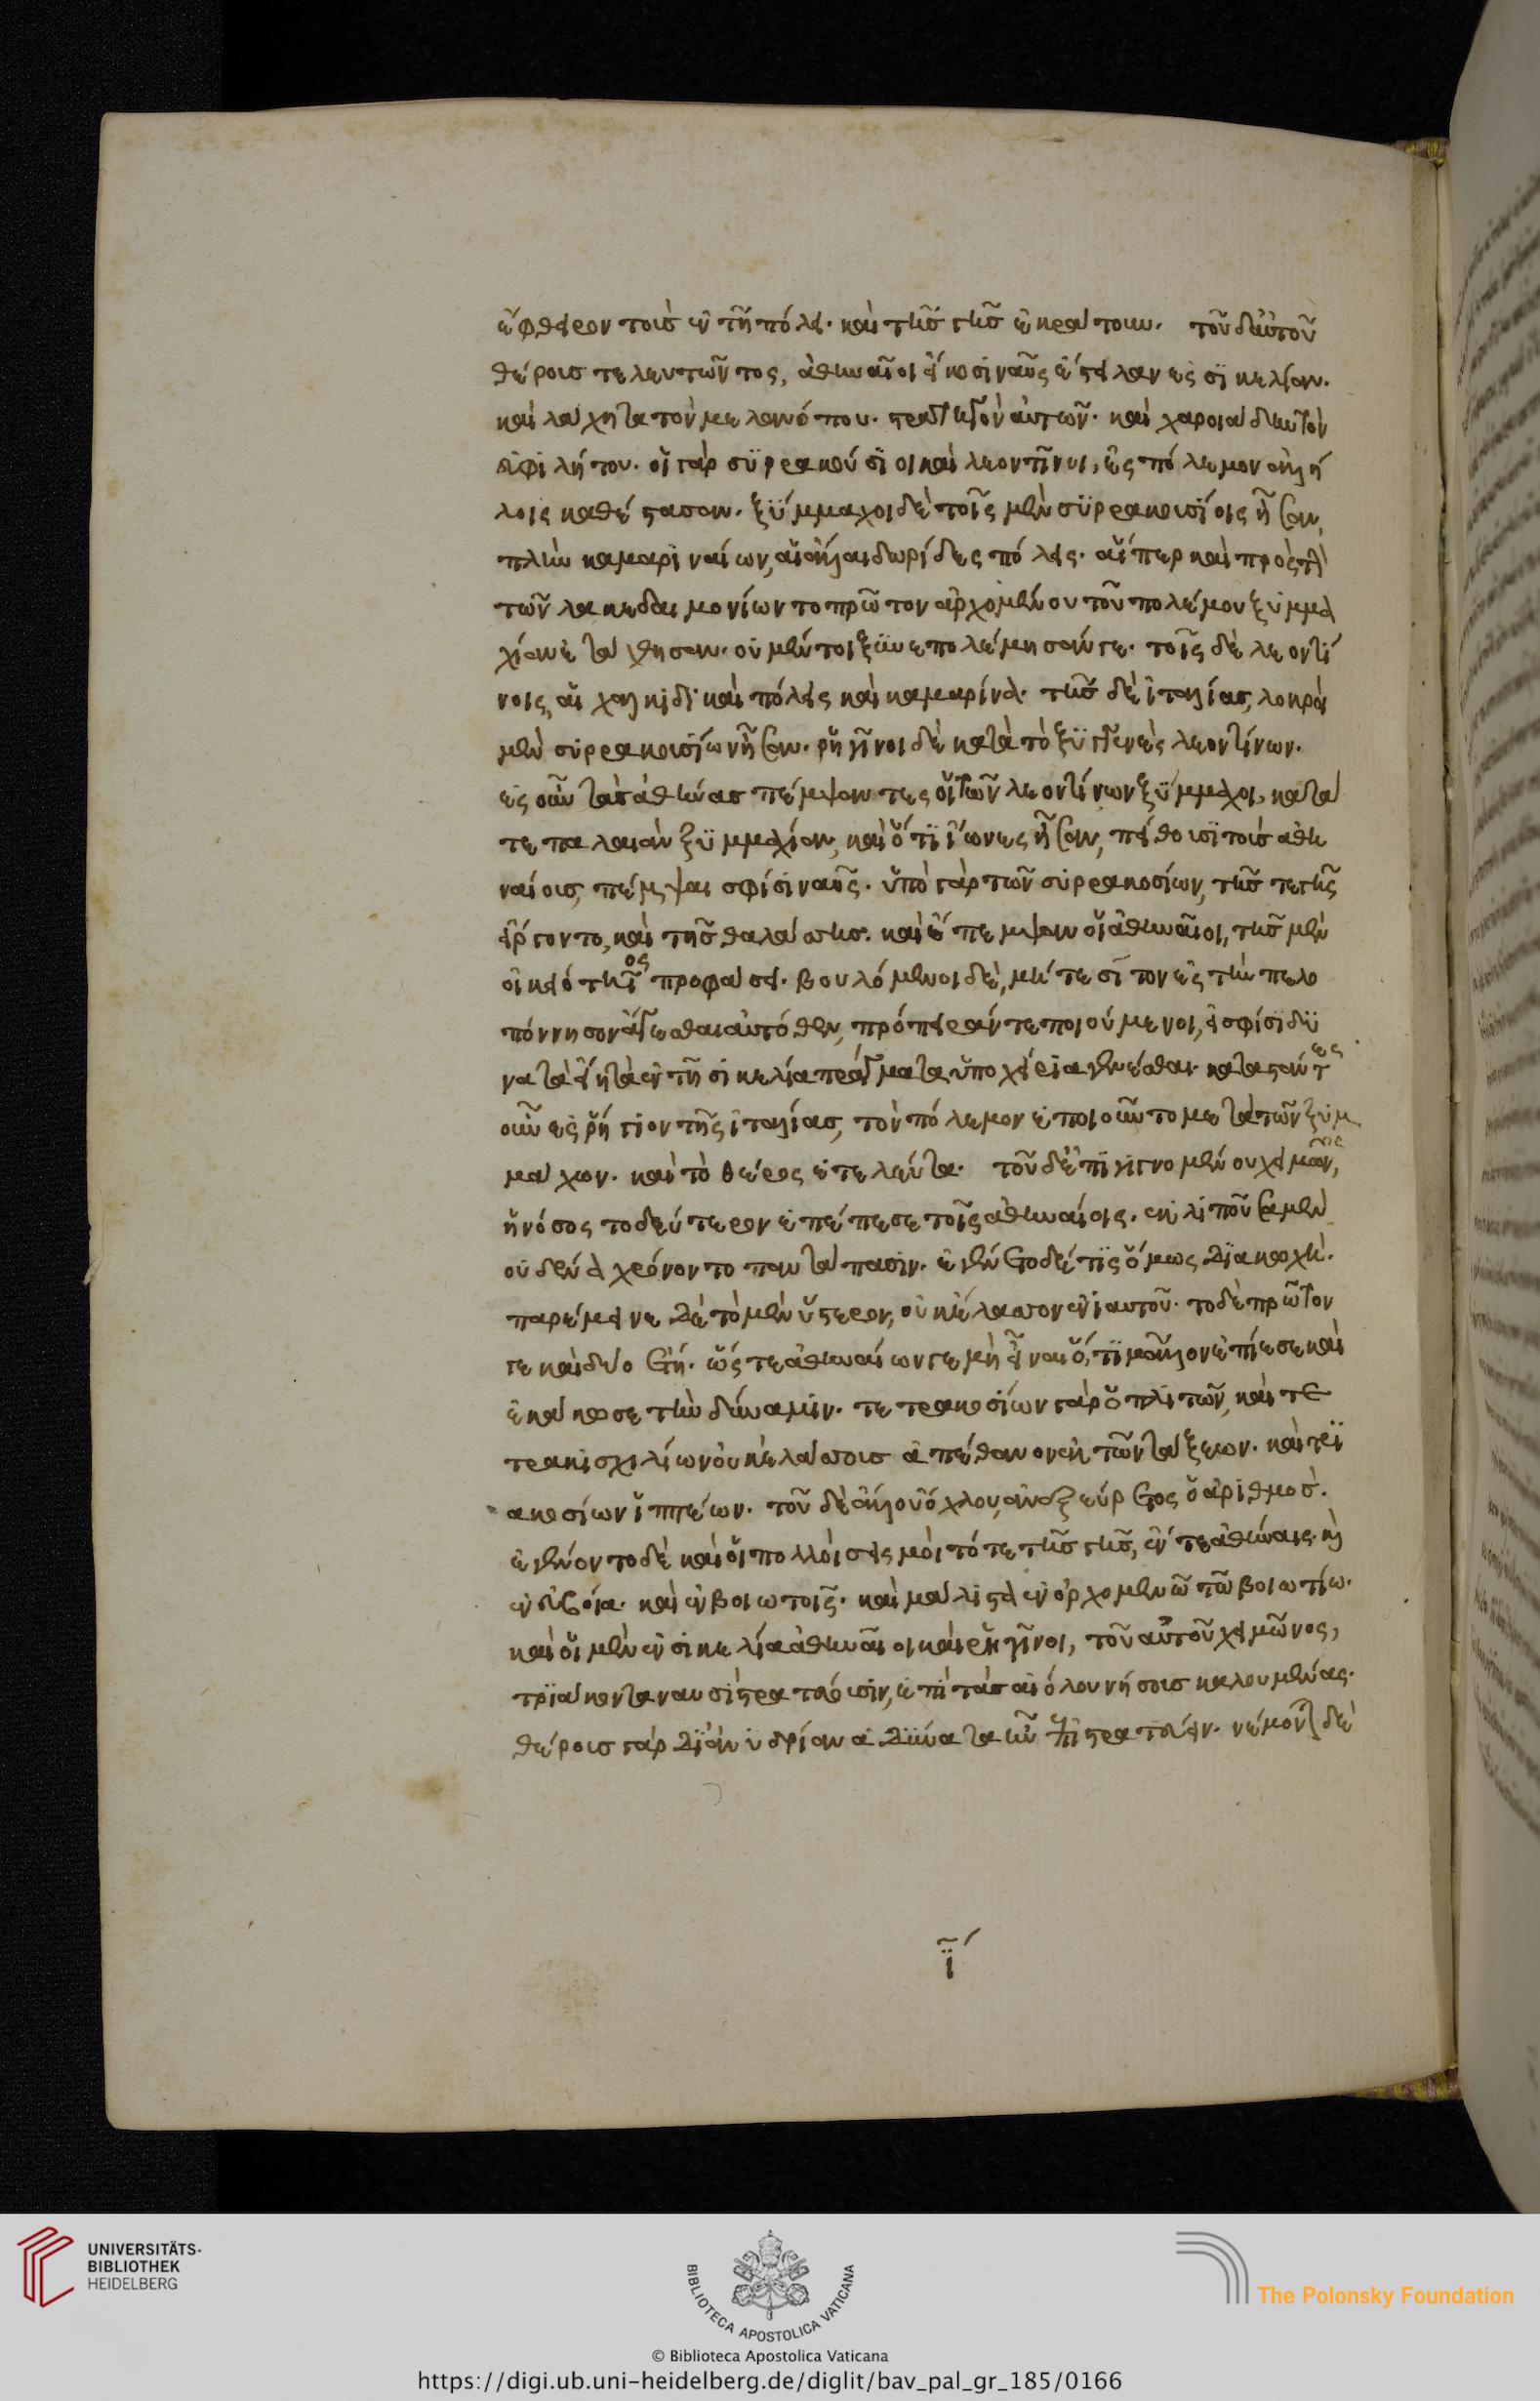 ἔφθειρον τοὺς ἐν τῆ πόλει· καὶ τῆς γῆς ἐκράτουν. τοῦ δ'αὐτοῦ
θέρους τελευτῶντος, ἀθηναῖοι εἴκοσι ναῦς ἔστειλαν ἐς σικελίαν.
καὶ λάχητα τὸν μελανόπου. στρατηγὸν αὐτῶν. καὶ χαροιάδην τὸν
εὐφιλήτου. οἱ γὰρ συρακούσιοι καὶ λεοντῖνοι, ἐς πόλεμον ἀλλή
λοις καθέστασαν. ξύμμαχοι δὲ τοῖς μὲν συρακουσίοις ἦσαν,
πλὴν καμαριναίων, αἱ ἄλλαι δωρίδες πόλεις. αἵπερ καὶ πρὸς τὴν
τῶν λακεδαιμονίων τοπρῶτον ἀρχομένου τοῦ πολέμου ξυμμα
χίαν ἐτάχθησαν. οὐ μέντοι ξυνεπολέμησάν γε. τοῖς δὲ λεοντί
νοις, αἱ χαλκιδικαὶ πόλεις καὶ καμαρίνα. τῆς δὲ ἰταλίας, λοκροὶ
μὲν συρακουσίων ἦσαν. ρηγῖνοι δὲ κατὰ τὸ ξυγγενὲς λεοντίνων.
ἐς οὖν τὰς ἀθήνας πέμψαντες οἱ τῶν λεοντίνων ξύμμαχοι, κατά
τε παλαιὰν ξυμμαχίαν, καὶ ὅτι ἴωνες ἦσαν, πείθουσι τοὺς ἀθη
ναίους, πέμψαι σφίσι ναῦς. ὑπὸ γὰρ τῶν συρακοσίων, τῆς τε γῆς
εἴργοντο, καὶ τῆς θαλάσσης. καὶ ἔπεμψαν οἱ ἀθηναῖοι, τῆς μὲν
οἰκειότητος προφάσει. βουλόμενοι δὲ, μήτε σῖτον ἐς τὴν πελο
πόννησον ἄγεσθαι αὐτόθεν, πρόπειράν τε ποιούμενοι, εἰ σφίσι δυ
νατὰ εἴη τὰ ἐν τῆ σικελία πράγματα ὑποχείρια γενέσθαι. καταστάντες
οὖν ἐς ῥήγιον τῆς ἰταλίας, τὸν πόλεμον ἐποιοῦντο μετὰ τῶν ξυμ
μάχων. καὶ τὸ θέρος ἐτελεύτα. τοῦ δ' ἐπιγιγνομένου χειμῶνος,
ἡ νόσος τοδεύτερον ἐπέπεσε τοῖς ἀθηναίοις. ἐκλιποῦσα μὲν
οὐδένα χρόνον τοπαντάπασιν. ἐγένετο δέ τις ὅμως διακοχή.
παρέμεινε δὲ τὸ μὲν ὕστερον, οὐκ ἔλασσον ἐνιαυτοῦ. τὸ δὲ πρῶτον
γε καὶ δύο ἔτη. ὥστε ἀθηναίων γε μὴ εἶναι ὅ, τι μᾶλλον ἐπίεσε καὶ
ἐκάκωσε τὴν δύναμιν. τετρακοσίων γὰρ ὁπλιτῶν, καὶ τε
τρακισχιλίων οὐκ ἐλάσσους ἀπέθανον ἐκ τῶν τάξεων. καὶ τρι
ακοσίων ἱππέων. τοῦ δὲ ἄλλου ὄχλου, ἀνεξεύρετος ὁ ἀριθμός.
ἐγένοντο δὲ καὶ οἱ πολλοὶ σεισμοὶ τότε τῆς γῆς, ἔν τε ἀθήναις. καὶ
ἐν εὐβοία. καὶ ἐν βοιωτοῖς. καὶ μάλιστα ἐν ὀρχομενῶ τῶ βοιωτίω.
καὶ οἱ μὲν ἐν σικελία ἀθηναῖοι καὶ ρηγῖνοι, τοῦ αὐτοῦ χειμῶνος,
τριάκοντα ναυσὶ στρατεύουσιν, ἐπὶ τὰς αἰόλου νήσους καλουμένας.
θέρους γὰρ δι' ἀνυδρίαν ἀδύνατα ἦν ἐπιστρατεύειν. νέμονται δὲ
ϊ
UNIVERSITÄTS-
BIBLIOTHEK
HEIDELBERG
BIBLIOTECA APOSTOLICA VATICANA
The Polonsky Foundation
© Biblioteca Apostolica Vaticana
https://digi.ub.uni-heidelberg.de/diglit/bav_pal_gr_185/0166